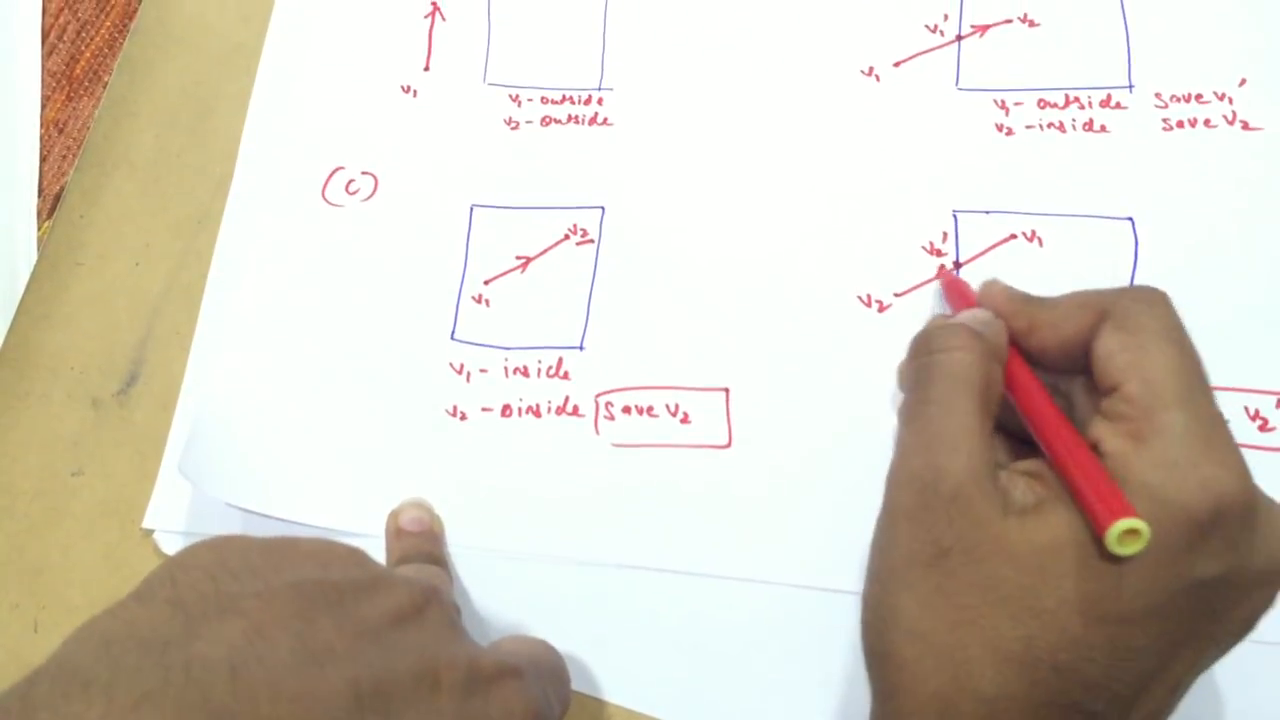 v₁
v₁ - outside
v₂ - outside
v₁'
v₂
v₁
v₁ - outside save v₁'
v₂ - inside save v₂
(c)
v₂
v₁
v₁ - inside
v₂ - oinside save v₂
v₂'
v₁
v₂
v₂'